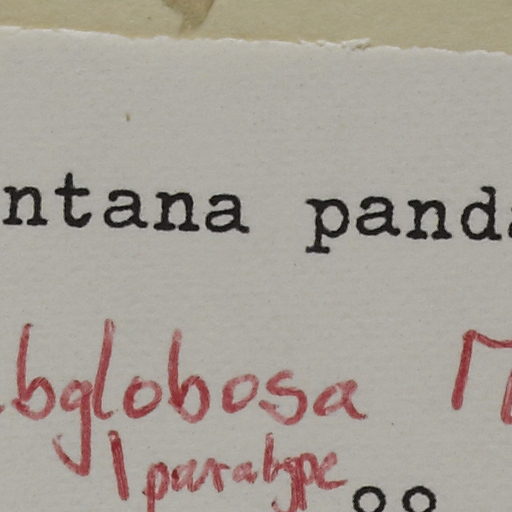 ntana panda
bglobosa M
1 paratype